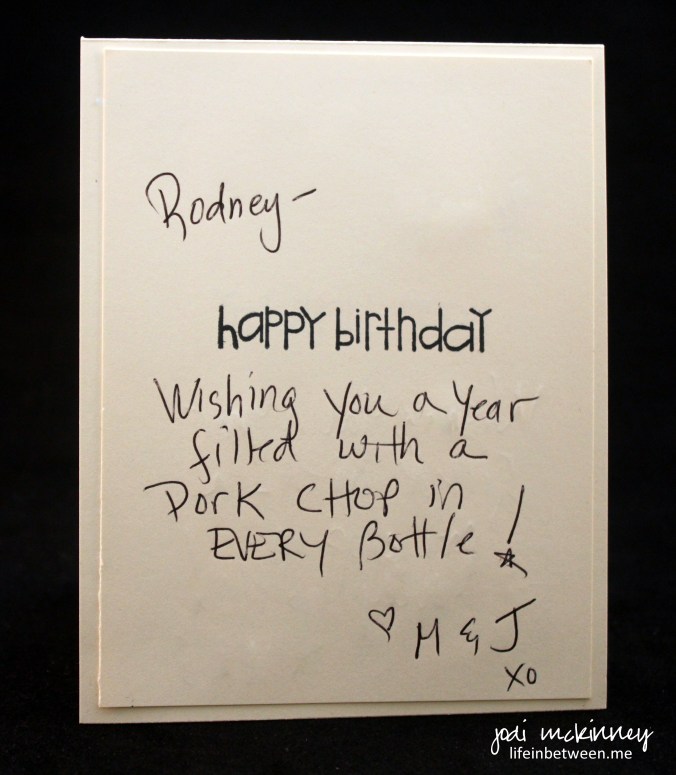 Rodney-
happy birthday
Wishing you a year
filled with a
Pork CHOP in
EVERY Bottle!
♡ M & J
XO
jodi mckinney
lifeinbetween.me